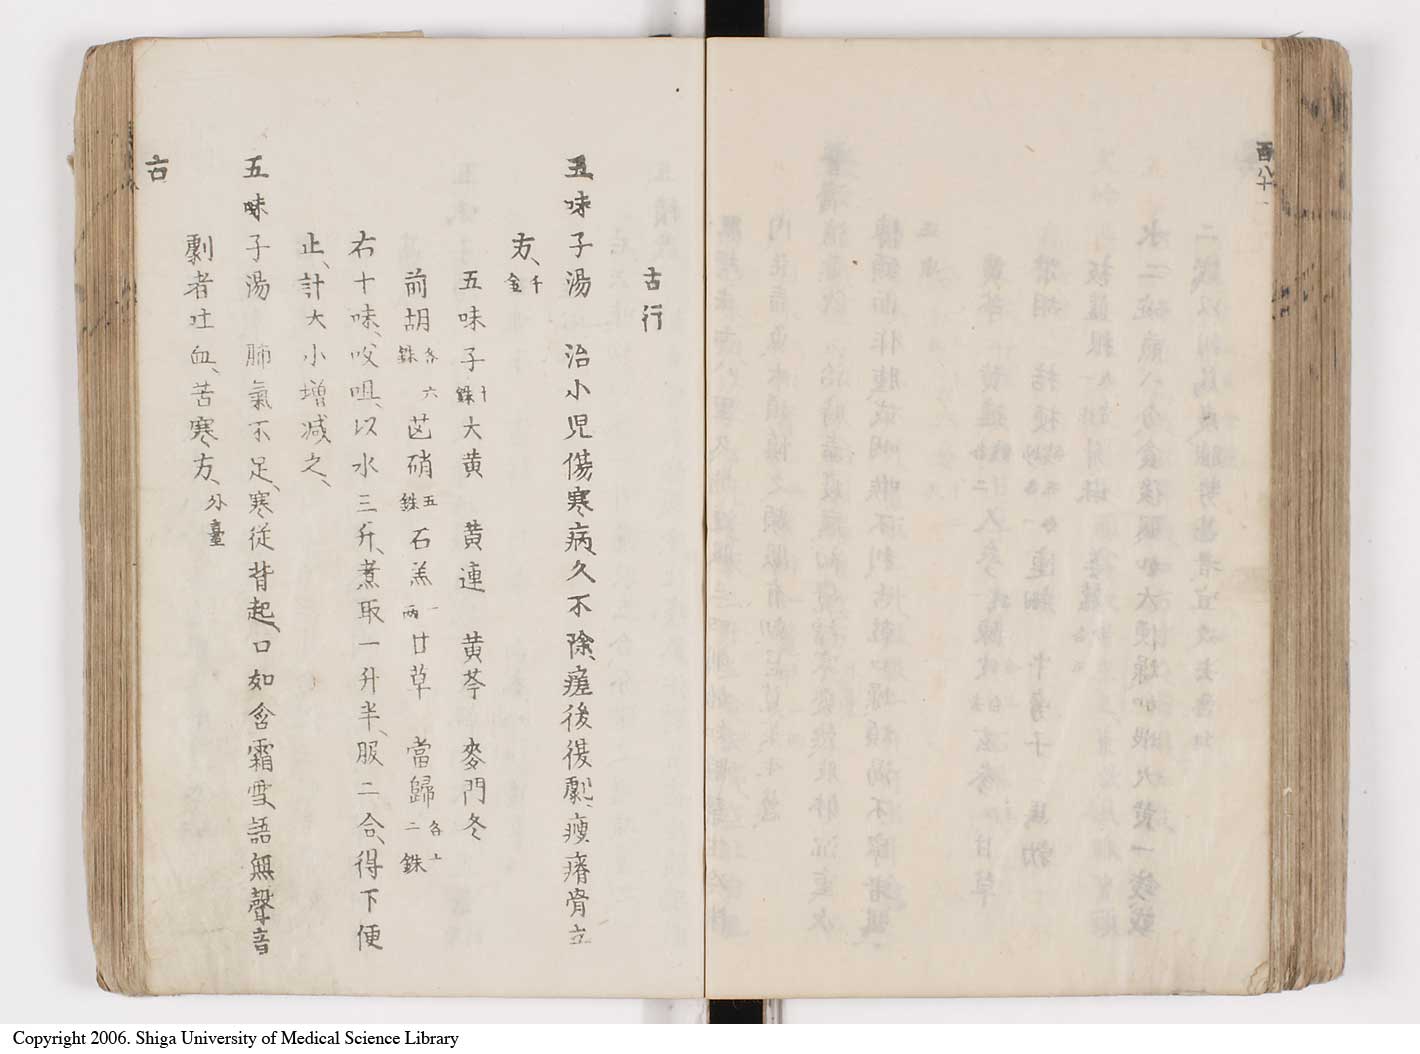 百八十一
古行
五味子湯 治小児傷寒病、久不除、瘥後復劇、瘦瘠骨立
方、千金
五味子十銖 大黄 黄連 黄芩 麥門冬
前胡各六銖 芒硝五銖 石羔一兩 甘草 當歸各十二銖
右十味、㕮咀、以水三升、煮取一升半、服二合、得下便
止、計大小增減之、
五味子湯 肺氣不足、寒従背起、口如含霜雪、語無聲音
劇者吐血、苦寒方、外臺
古
Copyright 2006. Shiga University of Medical Science Library